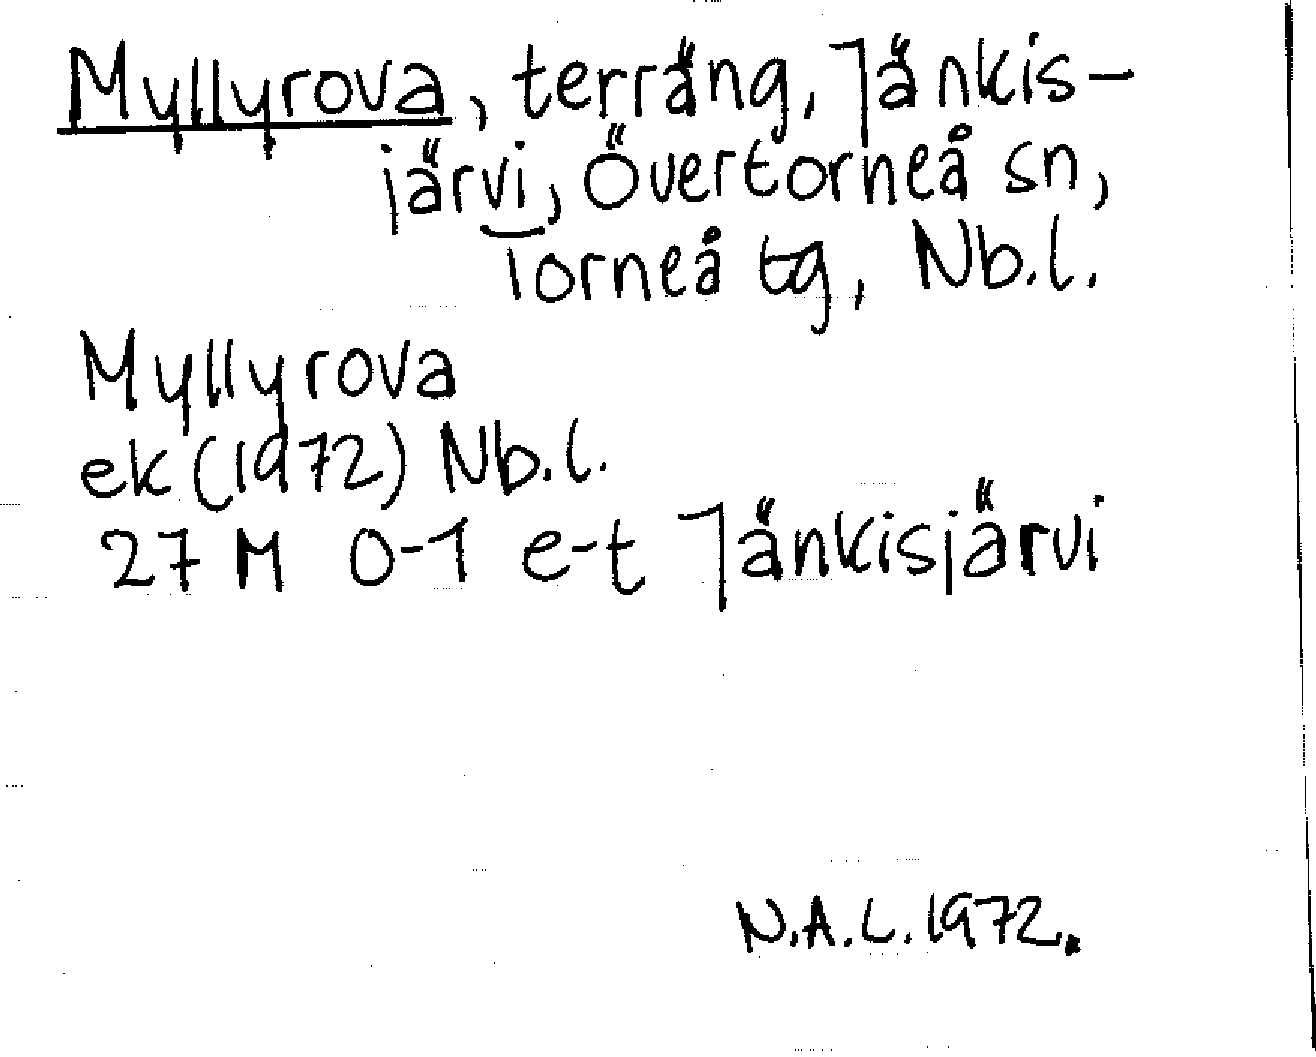 Myllyrova, terräng, Jänkis-
järvi, Övertorneå sn,
Torneå tg, Nb.l.
Myllyrova
ek (1972) Nb.l.
27 M 0-1 e-t Jänkisjärvi
N.A.L. 1972.